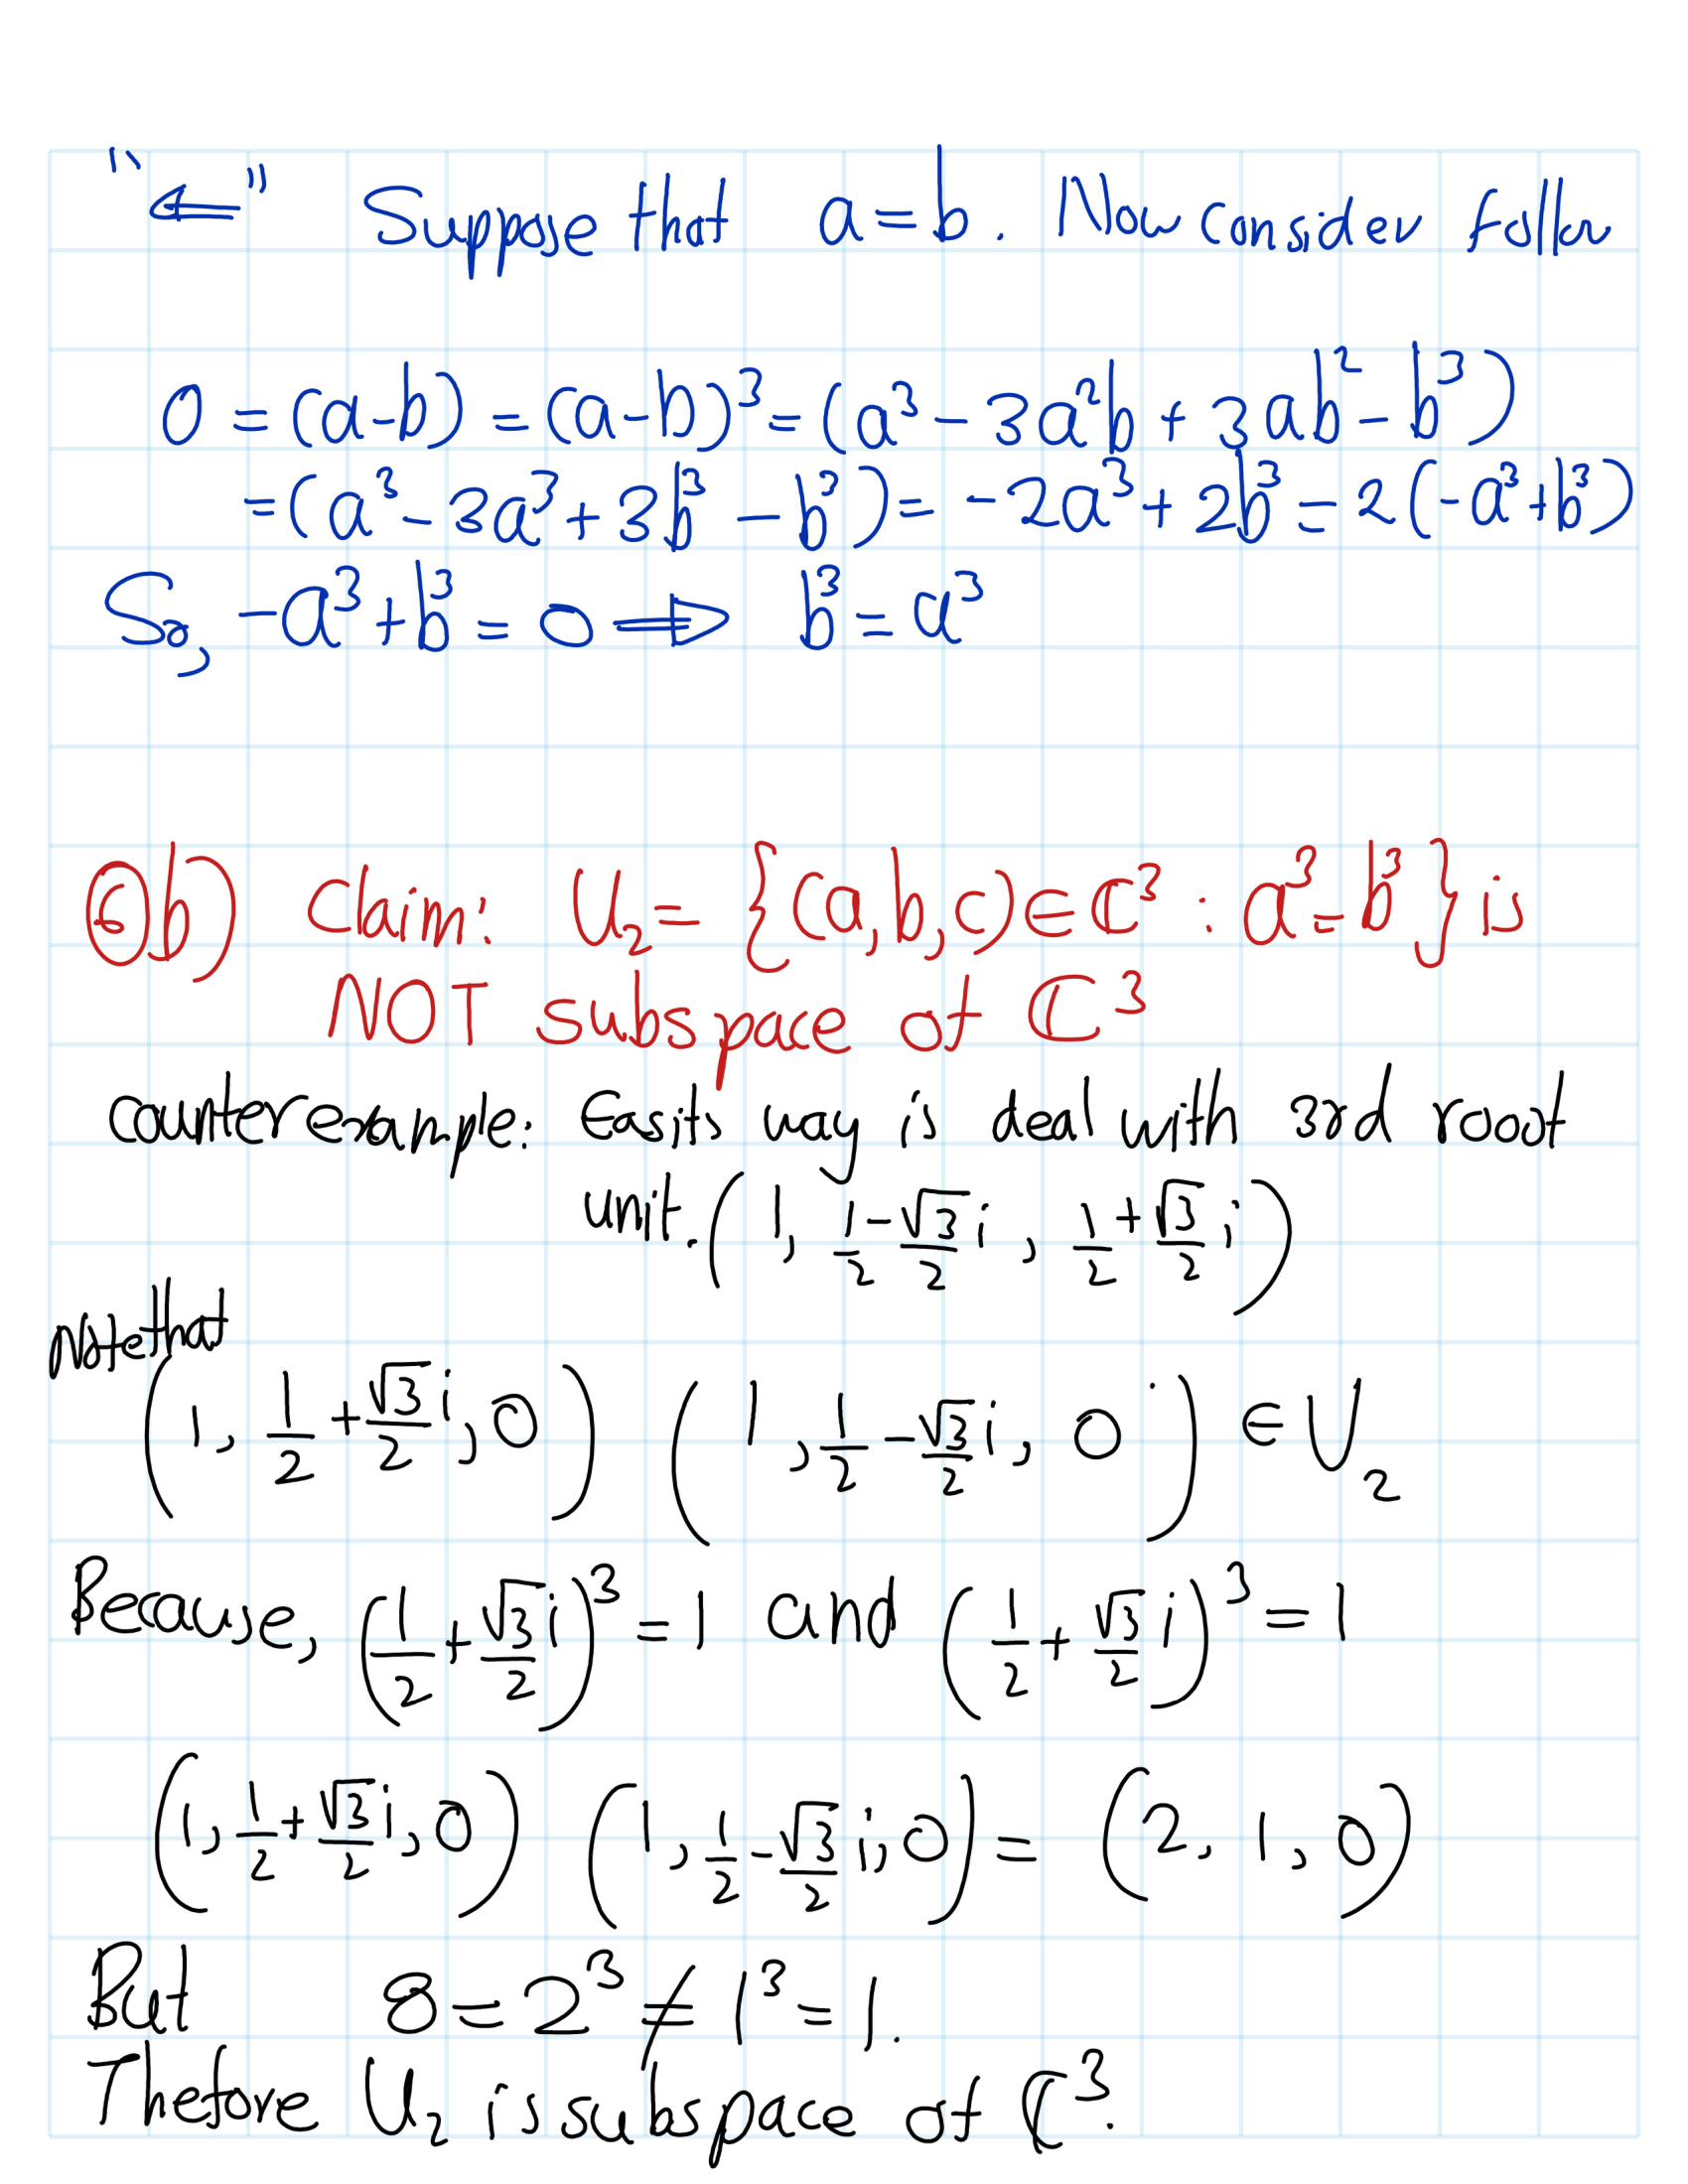 "⇐" Suppose that a=b. Now consider follow
0 = (a-b) = (a-b)³ = (a³ - 3a²b + 3ab² - b³)
= (a³ - 3a³ + 3b³ - b³) = -2a³ + 2b³ = 2(-a³+b³)
So, -a³+b³ = 0 ⟹ b³ = a³
6b) Claim: U₂ = {(a,b,c) ∈ ℂ³ : a³=b³} is
NOT subspace of ℂ³
counterexample: Easits way is deal with 3rd root
unit. (1, 1/2 - √3/2 i, 1/2 + √3/2 i)
Note that
(1, 1/2 + √3/2 i, 0) (1, 1/2 - √3/2 i, 0) ∈ U₂
Because, (1/2 + √3/2 i)³ = 1 and (1/2 + √3/2 i)³ = 1
(1, 1/2 + √3/2 i, 0) (1, 1/2 - √3/2 i, 0) = (2, 1, 0)
But 8 = 2³ ≠ 1³ = 1.
Thefore U₂ is subspace of ℂ³.